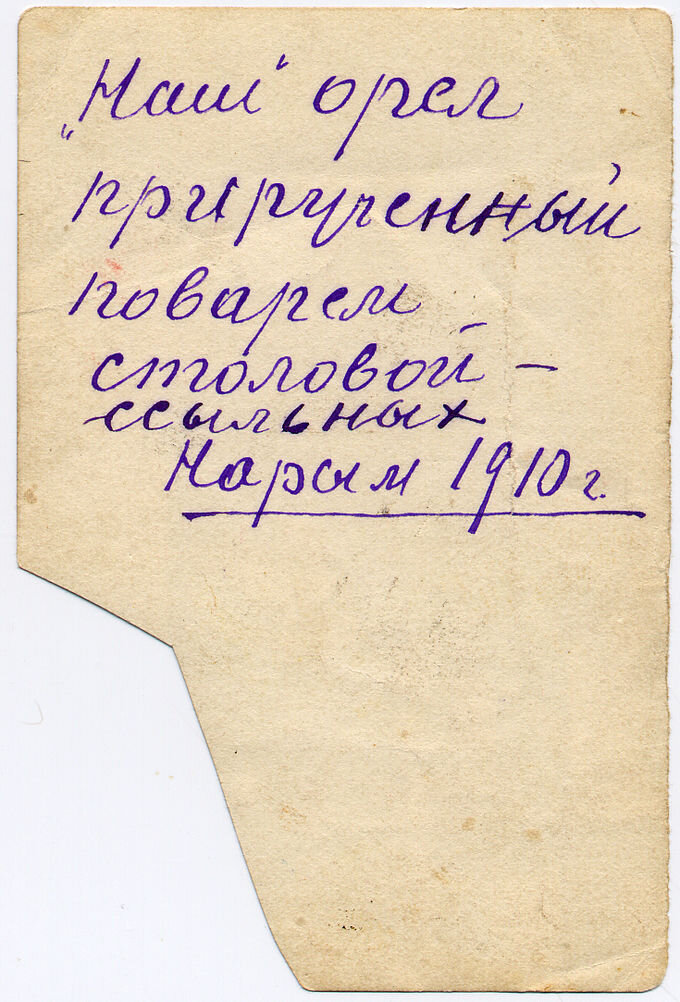 „Наш“ орел
прирученный
поварем
столовой –
ссыльных
Нарым 1910 г.